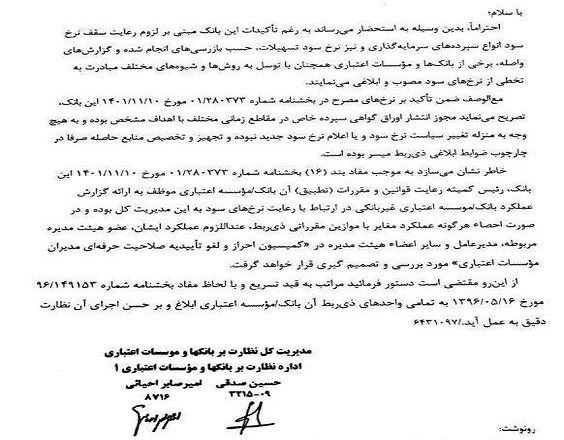 با سلام؛
احتراماً، بدین وسیله به استحضار می‌رساند به رغم تأکیدات این بانک مبنی بر لزوم رعایت سقف نرخ
سود انواع سپرده‌های سرمایه‌گذاری و نیز نرخ سود تسهیلات، حسب بازرسی‌های انجام شده و گزارش‌های
واصله، برخی از بانک‌ها و مؤسسات اعتباری همچنان با توسل به روش‌ها و شیوه‌های مختلف مبادرت به
تخطی از نرخ‌های سود مصوب و ابلاغی می‌نمایند.
مع‌الوصف ضمن تأکید بر نرخ‌های مصرح در بخشنامه شماره ۰۱/۲۸۰۳۷۳ مورخ ۱۴۰۱/۱۱/۱۰ این بانک،
تصریح می‌نماید مجوز انتشار اوراق گواهی سپرده خاص در مقاطع زمانی مختلف با اهداف مشخص بوده و به هیچ
وجه به منزله تغییر سیاست نرخ سود و یا اعلام نرخ سود جدید نبوده و تجهیز و تخصیص منابع حاصله صرفا در
چارچوب ضوابط ابلاغی ذی‌ربط میسر بوده است.
خاطر نشان می‌سازد به موجب مفاد بند (۱۶) بخشنامه شماره ۰۱/۲۸۰۳۷۳ مورخ ۱۴۰۱/۱۱/۱۰ این
بانک، رئیس کمیته رعایت قوانین و مقررات (تطبیق) آن بانک/مؤسسه اعتباری موظف به ارائه گزارش
عملکرد بانک/موسسه اعتباری غیربانکی در ارتباط با رعایت نرخ‌های سود به این مدیریت کل بوده و در
صورت احصاء هرگونه عملکرد مغایر با موازین مقرراتی ذی‌ربط، عنداللزوم عملکرد ایشان، عضو هیئت مدیره
مربوطه، مدیرعامل و سایر اعضاء هیئت مدیره در «کمیسیون احراز و لغو تأییدیه صلاحیت حرفه‌ای مدیران
مؤسسات اعتباری» مورد بررسی و تصمیم گیری قرار خواهد گرفت.
از این‌رو مقتضی است دستور فرمائید مراتب به قید تسریع و با لحاظ مفاد بخشنامه شماره ۹۶/۱۴۹۱۵۳
مورخ ۱۳۹۶/۰۵/۱۶ به تمامی واحدهای ذی‌ربط آن بانک/مؤسسه اعتباری ابلاغ و بر حسن اجرای آن نظارت
دقیق به عمل آید./۶۴۳۱۰۹۷
مدیریت کل نظارت بر بانکها و موسسات اعتباری
اداره نظارت بر بانکها و مؤسسات اعتباری ۱
حسین صدقی امیرصابر احیائی
۳۲۱۵-۰۹ ۸۷۱۶
رونوشت: